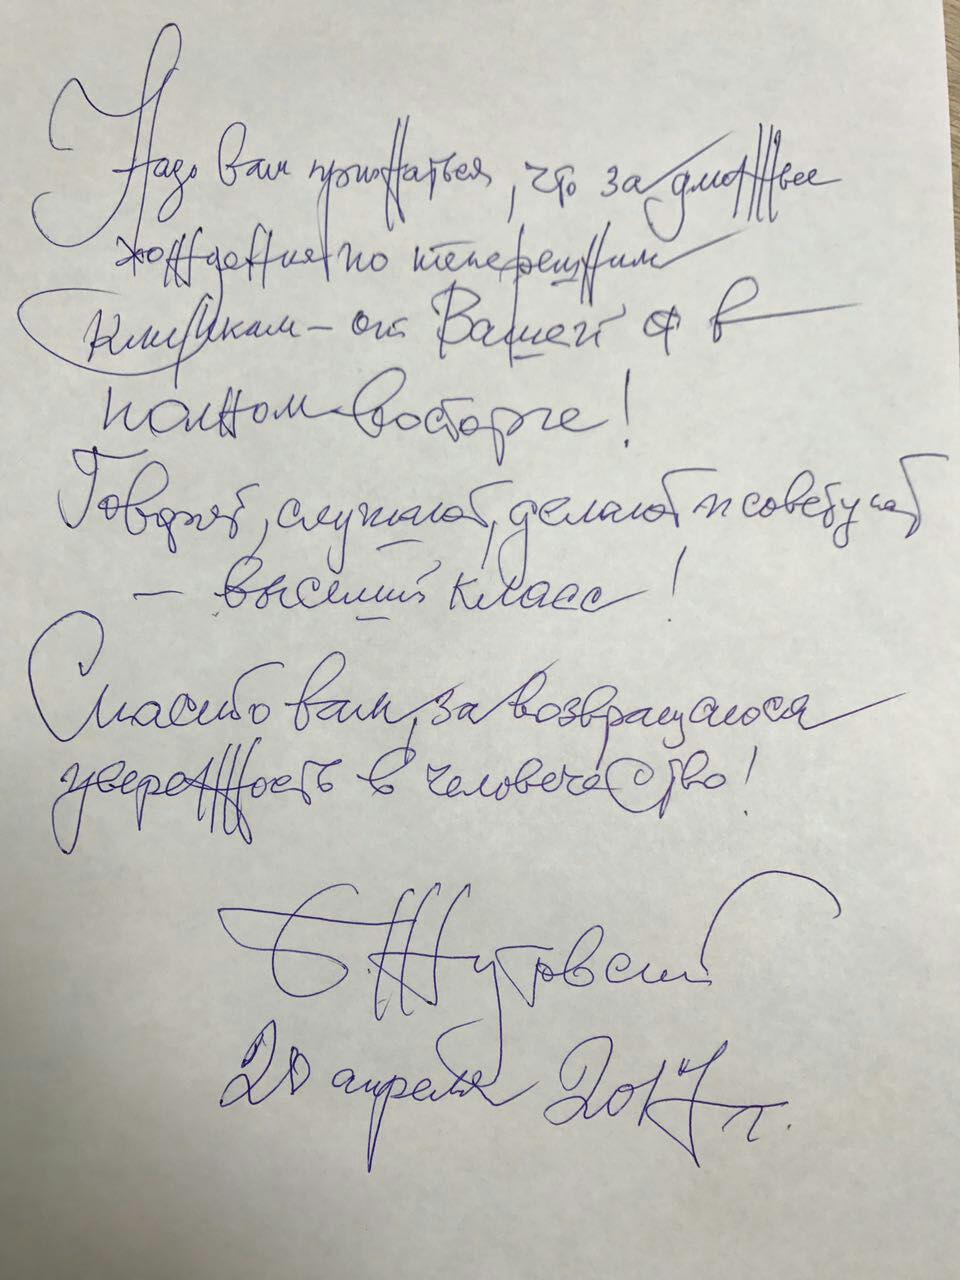 Надо вам признаться, что за
хождения по теперешним
клиникам – от Вашей я в
полном восторге!
Говорят, слушают, делают и советуют
– высший класс!
Спасибо вам, за возвращающуюся
уверенность в человечество!
Б. Жутовский
20 апреля 2017 г.